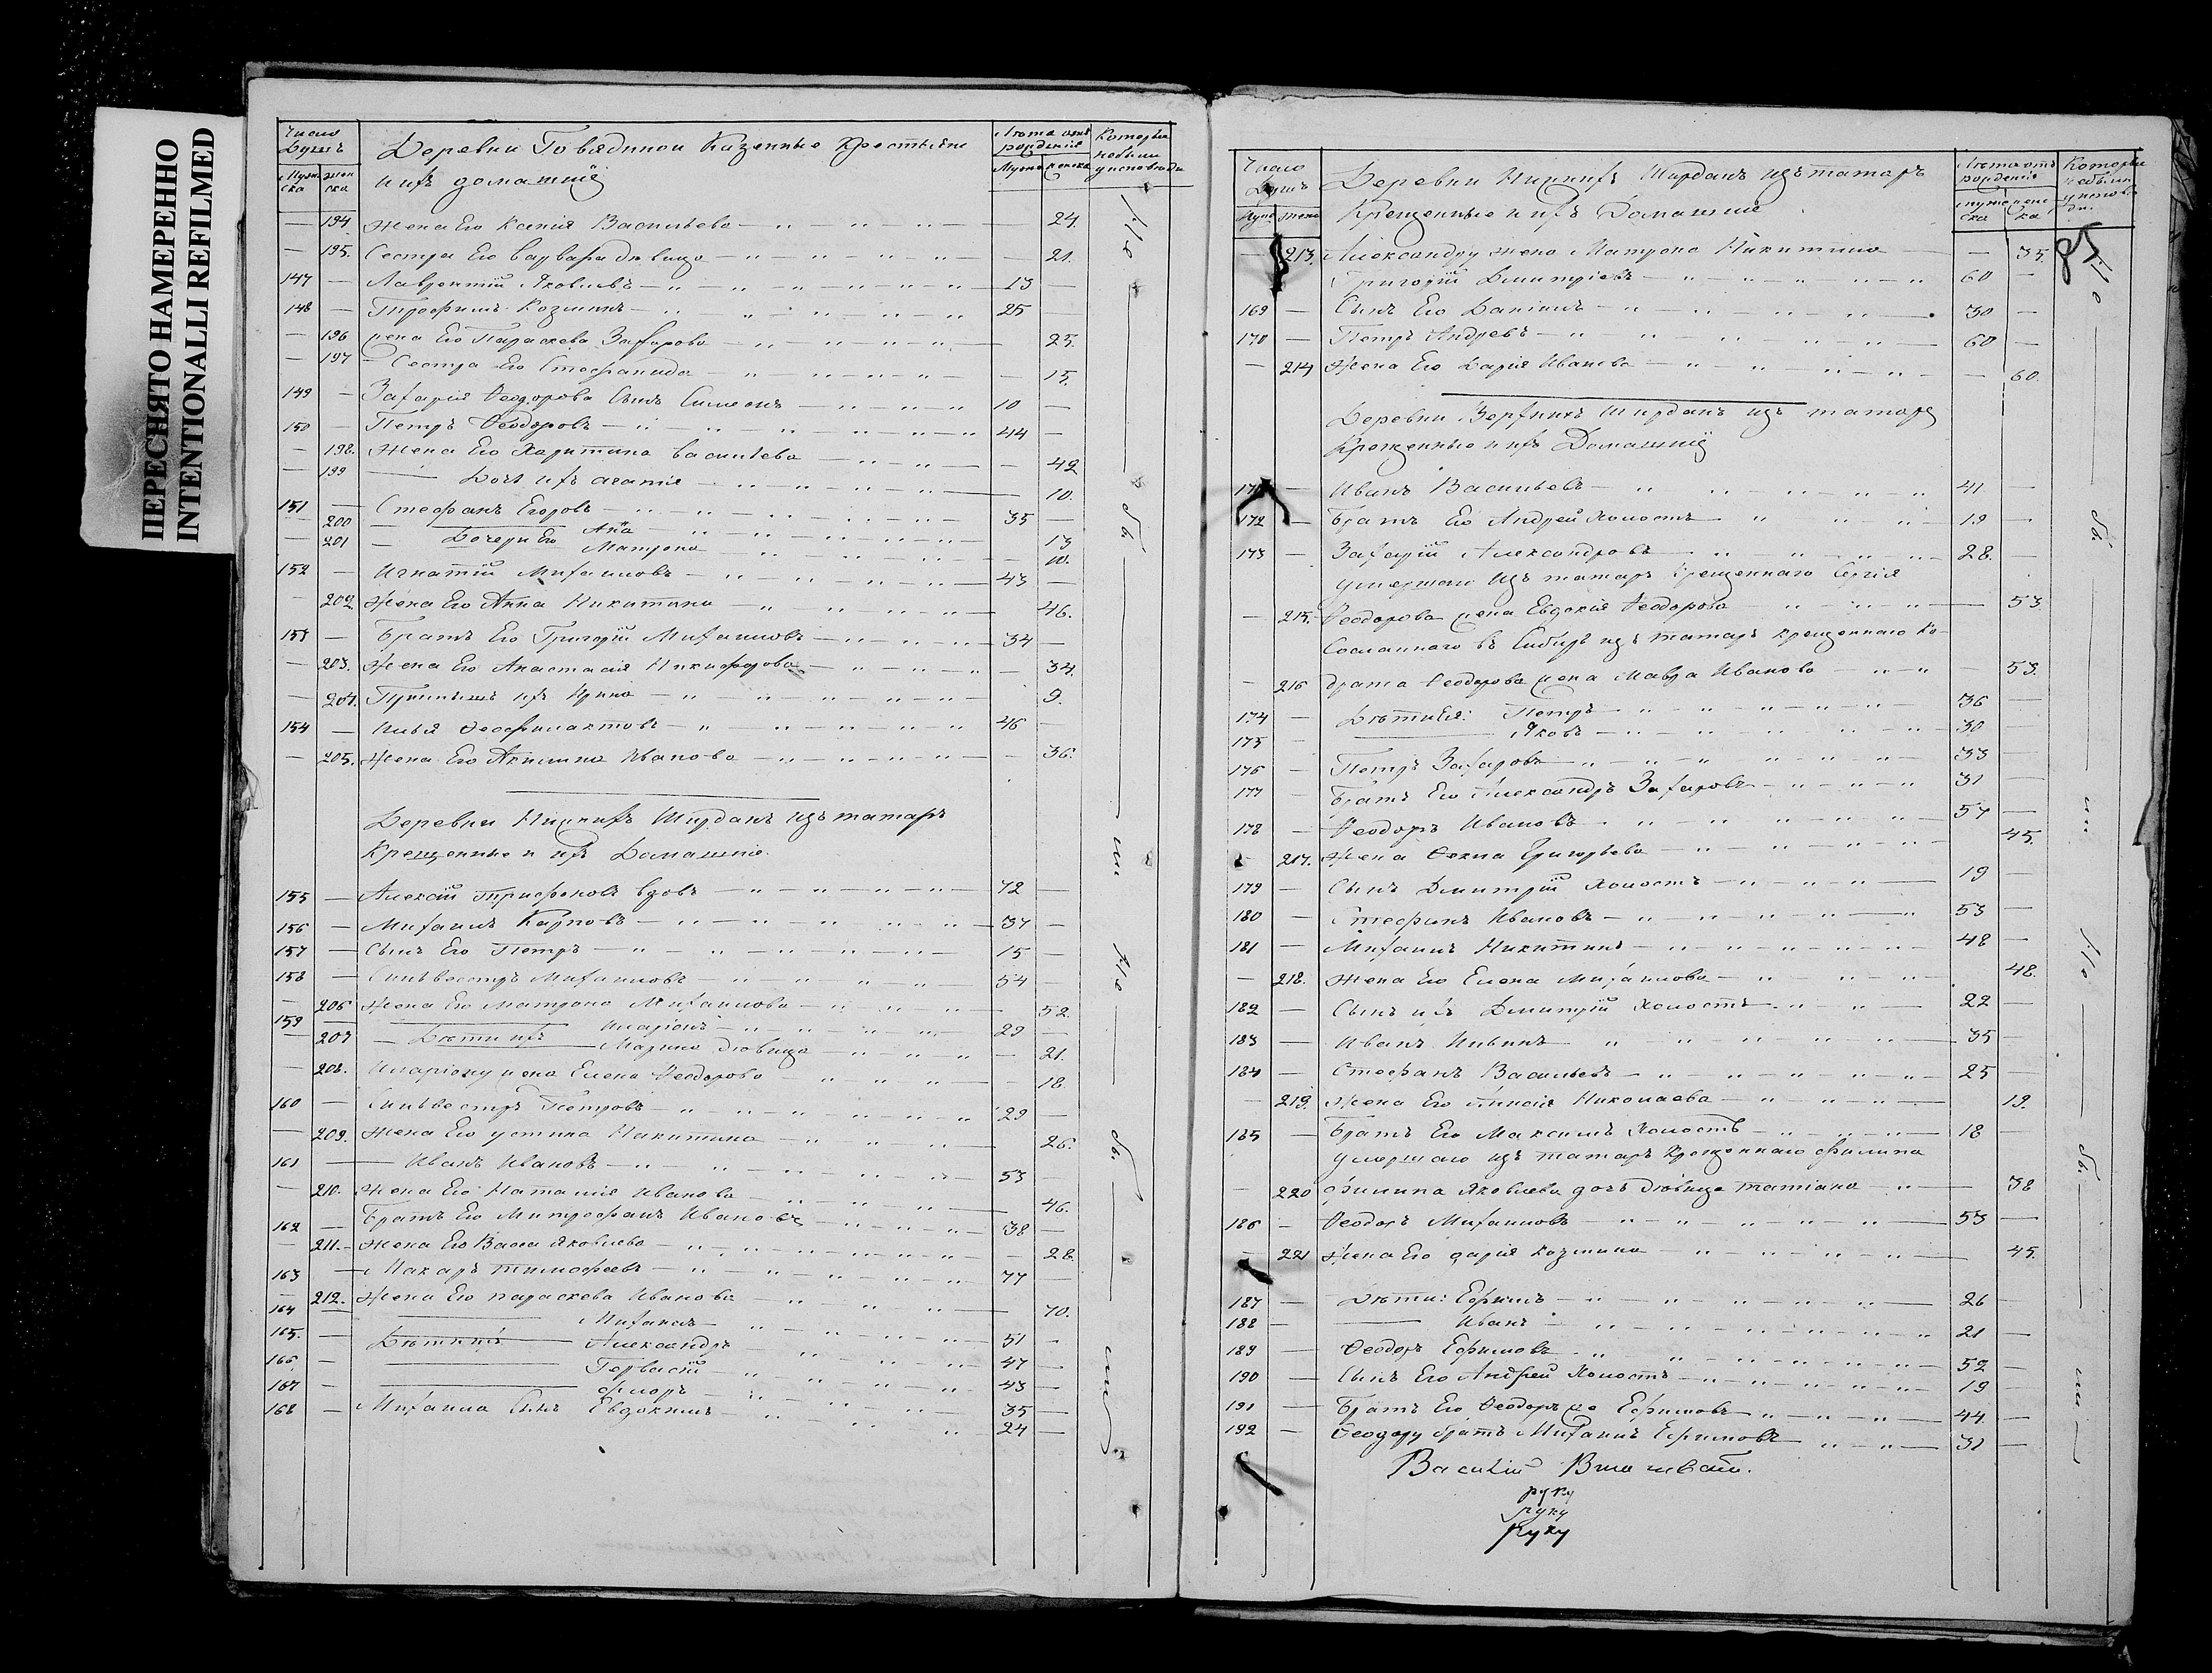 ПЕРЕСНЯТО НАМЕРЕННО
INTENTIONALLI REFILMED
Число Душъ
Деревни Говядиной Казенные крестьяне
Лѣта отъ рожденія
Которые небыли у исповѣди
Муже ска
жен ска
и ихъ домашніе
Мужс
женска
— 194. Жена Его Ксенія Васильева — 24.
— 195. Сестра Его Варвара дѣвица — 21.
147 — Лаврентій Яковлевъ — 13 —
148 — Трофимъ Козминъ — 25 —
— 196 жена Его Параскева Захарова — 25.
— 197 Сестра Его Стефанида — 15.
149 — Захарія Ѳеодорова Сынъ Симеонъ — 10 —
150 — Петръ Ѳеодоровъ — 44 —
— 198. Жена Его Харитина Васильева — 42
— 199 Дочь ихъ Агафія — 10.
151 — Стефанъ Егоровъ — 35 —
— 200 Дочери Его Анна — 13
— 201 Матрона — 10.
152 — Игнатій Михаиловъ — 43 —
— 202 Жена Его Анна Никитина — 46.
153 — Братъ Его Григорій Михаиловъ — 34 —
— 203. Жена Его Анастасія Никифорова — 34.
— 204. Ирина — 9.
154 — Илья Ѳеофилактовъ — 46 —
— 205. Жена Его Акилина Иванова — 36.
Деревни Нижнихъ Ширданъ изъ татаръ
Крещенные и ихъ Домашніе.
155 — Алексій Трифоновъ вдовъ — 72 —
156 — Михаилъ Карповъ — 37 —
157 — Сынъ Его Петръ — 15 —
158 — Сильвестръ Михаиловъ — 54 —
— 206 Жена Его Матрона Михаилова — 52.
159 — Иларіонъ — 29 —
— 207 — Дѣти ихъ Марина дѣвица — 21.
— 208. Иларіону жена Елена Ѳеодорова — 18.
160 — Сильвестръ Петровъ — 29 —
— 209. Жена Его Устина Никитина — 26.
161 — Иванъ Ивановъ — 53
— 210. Жена Его Наталія Иванова — 46.
162 — Братъ Его Митрофанъ Ивановъ — 38 —
— 211. Жена Его Васса Яковлева — 28.
163 — Макаръ Тимофеевъ — 77 —
— 212. Жена Его параскева Иванова — 70.
164 Михаилъ — 51 —
165. — Дѣти ихъ Александръ — 47 —
166 — Гервасій — 43 —
167 — Флоръ — 35 —
168 — Михаила Сынъ Евдокимъ — 24 —
Не — бы — ли
Не — бы — ли
Число Душъ
Деревни Нижнихъ Ширданъ изъ татаръ
Лѣта отъ рожденія
Которые небыли у исповѣди.
Муже
жена
Крещенные и ихъ Домашніе
муже ска
жен ска
85
— 213. Александру жена Матрона Никитина — 35.
Григорій Дмитріевъ — 60 —
169 — Сынъ Его Даніилъ — 30 —
170 — Петръ Андревъ — 60 —
— 214 Жена Его Дарія Иванова — 60.
Деревни Верхнихъ Ширданъ изъ татаръ
Крещенные и ихъ Домашніе
171 — Иванъ Васильевъ — 41 —
172 — Братъ Его Андрей Холостъ — 19 —
173 — Захарій Александровъ — 28. —
Умершаго изъ татаръ Крещеннаго Сергія
— 215. Ѳеодорова жена Евдокія Ѳеодорова — 53
Сосланнаго въ Сибирь изъ татаръ крещеннаго
— 216 Ѳеодорова жена Мавра Иванова — 53.
174 — Дѣти Ея: Петръ — 36
175 — Яковъ — 30
176 — Петръ Захаровъ — 33
177 — Братъ Его Александръ Захаровъ — 31 —
178 — Ѳеодоръ Ивановъ — 57 —
— 217. Жена Ѳекла Григорьева — 45.
179 — Сынъ Дмитрій Холостъ — 19 —
180 — Стефанъ Ивановъ — 53 —
181 — Михаилъ Никитинъ — 48 —
— 218. Жена Его Елена Михаилова — 48.
182 — Сынъ ихъ Дмитрій Холостъ — 22 —
183 — Иванъ Ильинъ — 35 —
184 — Стефанъ Васильевъ — 25 —
— 219. Жена Его Николаева — 19.
185 — Братъ Его Максимъ Холостъ — 18 —
Умершаго изъ татаръ Крещеннаго Филипа
— 220 Филипа Яковлева дочь дѣвица Татіана — 38
186 — Ѳеодоръ Михаиловъ — 53 —
— 221 Жена Его Дарія Козмина — 45.
187 — Дѣти: Ефимъ — 26 —
188 — Иванъ — 21 —
189 — Ѳеодоръ Ефимовъ — 52 —
190 — Сынъ Его Андрей Холостъ — 19 —
191 — Братъ Его Ѳеодоръ же Ефимовъ — 44 —
192 — Ѳеодору братъ Михаилъ Ефимовъ — 31 —
Не — бы — ли
Не — бы — ли
Василій
руку
руку
руку